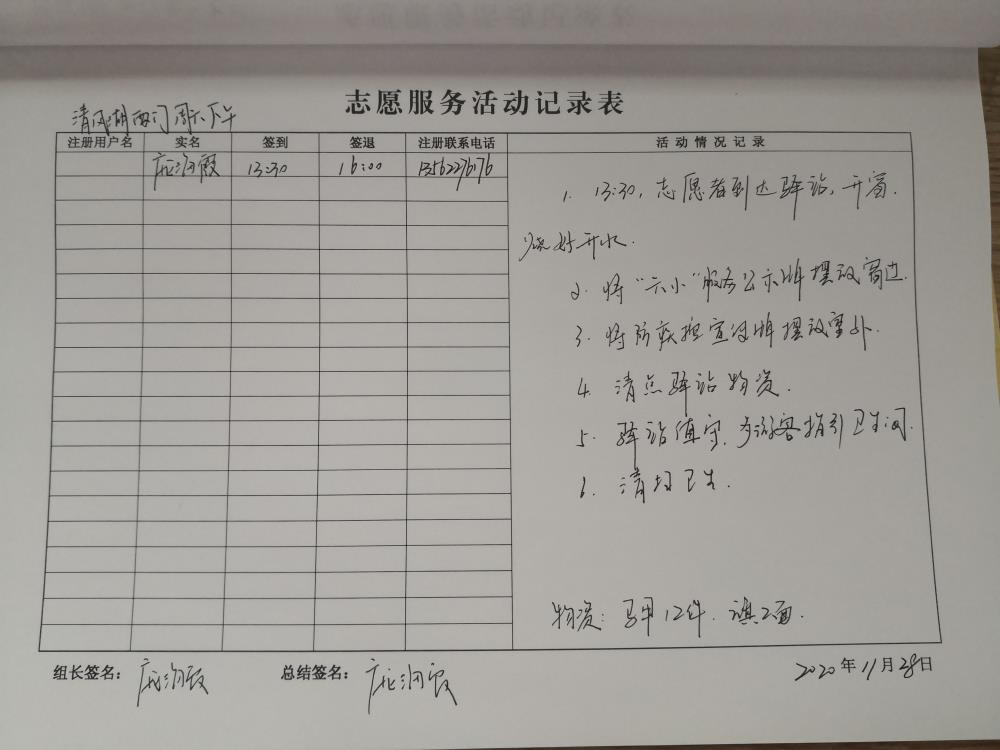 志愿服务活动记录表
清风湖西门周六下午
注册用户名 实名 签到 签退 注册联系电话 活动情况记录
庞润霞 13:30 16:00 13562276176
1. 13:30, 志愿者到达驿站, 开窗.
烧好开水.
2. 将“六小”服务公示牌摆放窗边.
3. 将防疫控宣传牌摆放室外.
4. 清点驿站物资.
5. 驿站值守, 为游客指引卫生间.
6. 清扫卫生.
物资: 马甲12件. 旗2面.
组长签名: 庞润霞 总结签名: 庞润霞 2020年11月28日